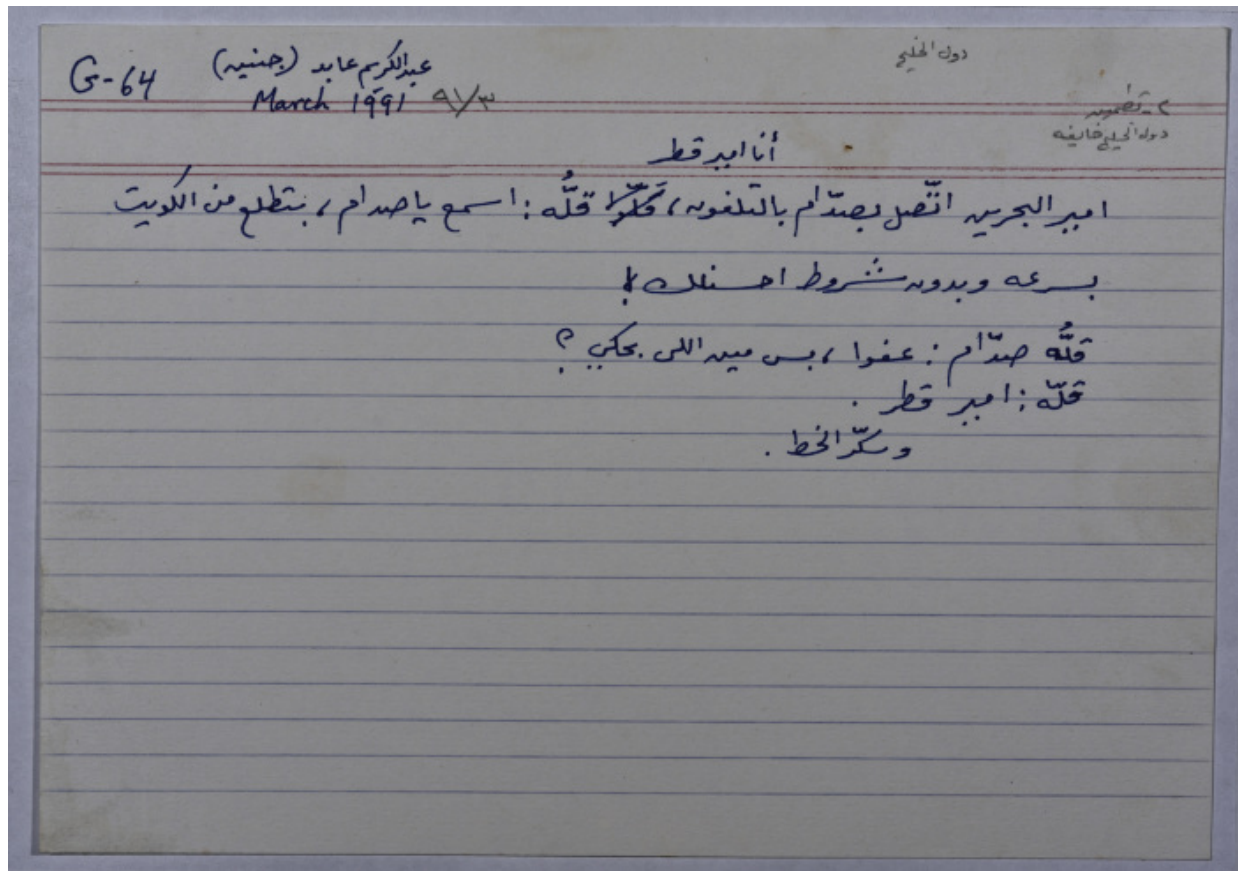 دول الخليج
G-64 عبدالكريم عابد (جنين)
March 1991 ٩١/٣
٢-
دول الخليج خايفه
أنا امير قطر
امير البحرين اتّصل بصدّام بالتلفون، قلُّه: اسمع يا صدام، بتطلع من الكويت
بسرعه وبدون شروط احسنلك!
قلُّه صدّام: عفوا، بس مين اللي بحكي؟
قلّه: امير قطر.
وسكّر الخط.